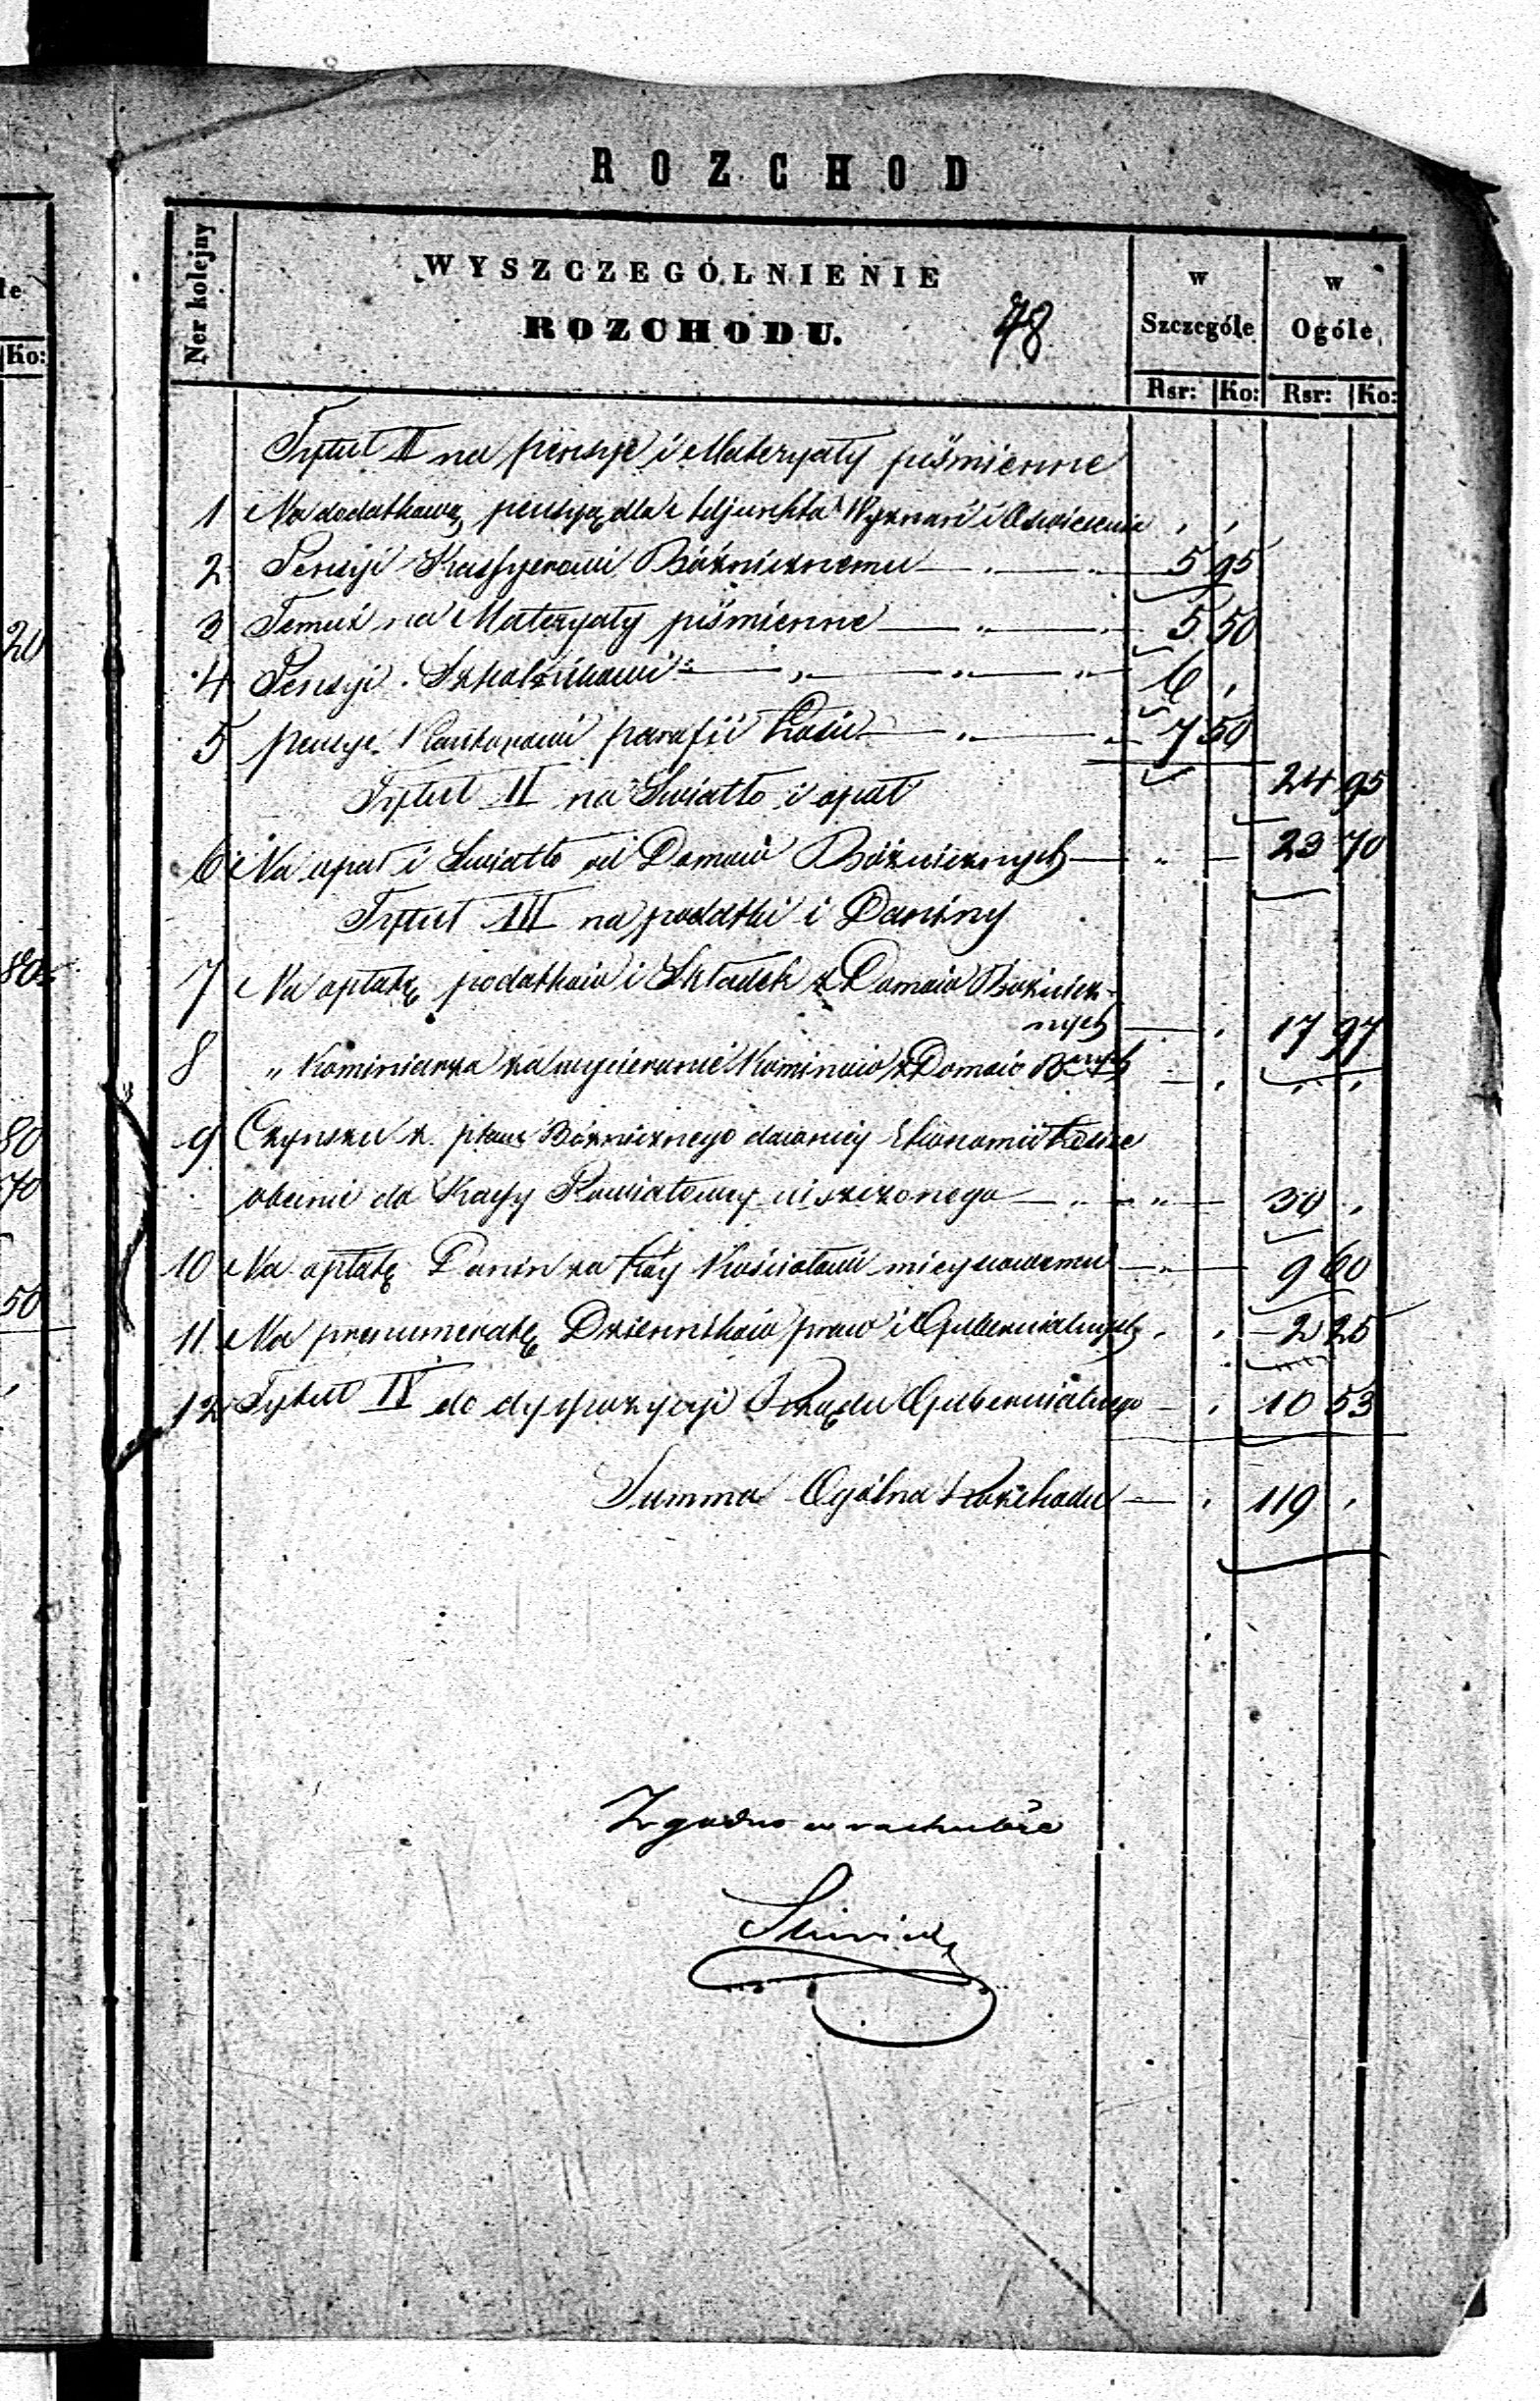 le
Ko:
20
80
80
70
50
ROZCHOD
Ner kolejny
WYSZCZEGÓLNIENIE
ROZCHODU.
78
w Szczególe
w Ogóle
Rsr: Ko: Rsr: Ko:
Tytuł II na pensye i Materyały piśmienne
1 Na dodatkową pensyą dla Adjunkta Wyznań i Oświecenia " "
2 Pensyi Kassyerowi Bóżnicznemu — " — " — 5 95
3 Temuż na Materyały piśmienne — " — " 5 50
4 Pensyi Szkolnikowi — " — " — " — 6 "
5 pensye Kantorowi parafii — " — " — 7 50
24 95
Tytuł II na Swiatło i opał
6 Na opał i Swiatło od Domów Bóżnicznych — " — 23 70
Tytuł III na podatki i Daniny
7 Na opłatę podatków i Składek z Domów Bóżnicz-
nych — " 17 97
8 " Kominiarza za wycieranie Kominów z Domów — " " "
9 Czynszu z placu Bóżnicznego dawniej Ekonomii
obecnie do Kassy Powiatowey uiszczonego — " — " — 30 "
10 Na opłatę Danin za Kościołowi miejscowemu — " — 9 60
11 Na prenumeratę Dzienników praw i Gubernialnych " " — 2 25
12 Tytuł IV do dyspozycyi Rządu Gubernialnego — " 10 53
Summa Ogólna Rozchodu — " 119 "
Zgodno w rachubie